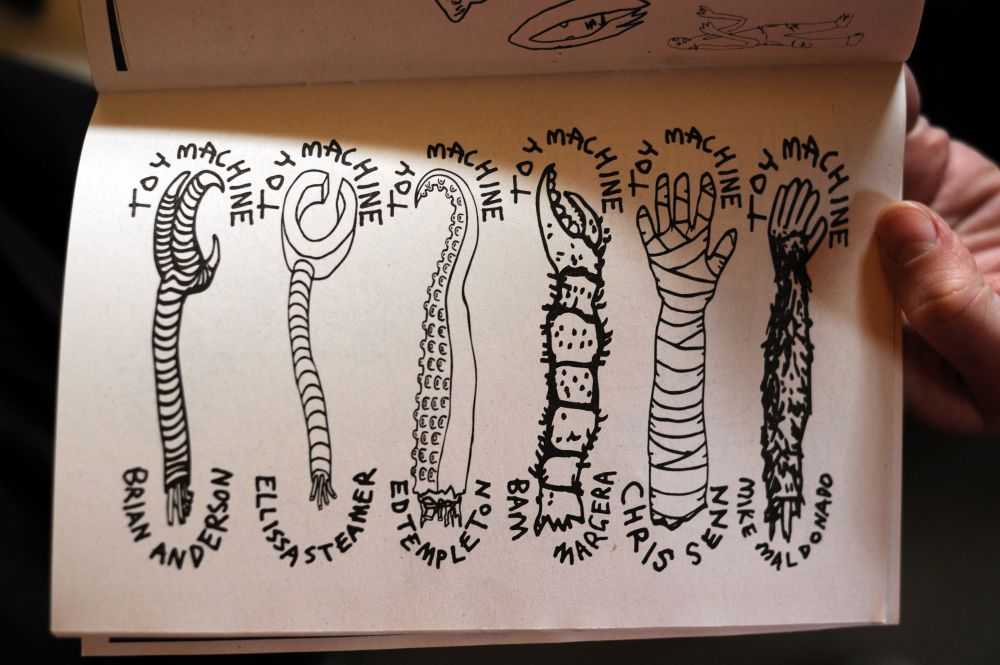 TOY MACHINE
BRIAN ANDERSON
TOY MACHINE
ELLISSA STEAMER
TOY MACHINE
ED TEMPLETON
TOY MACHINE
BAM MARGERA
TOY MACHINE
CHRIS SENN
TOY MACHINE
MIKE MALDONADO